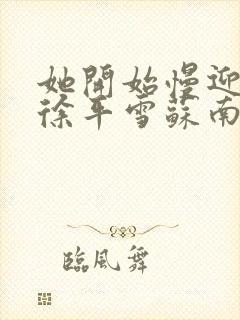 她開始慢迎
徐平雪蘇南
臨風舞